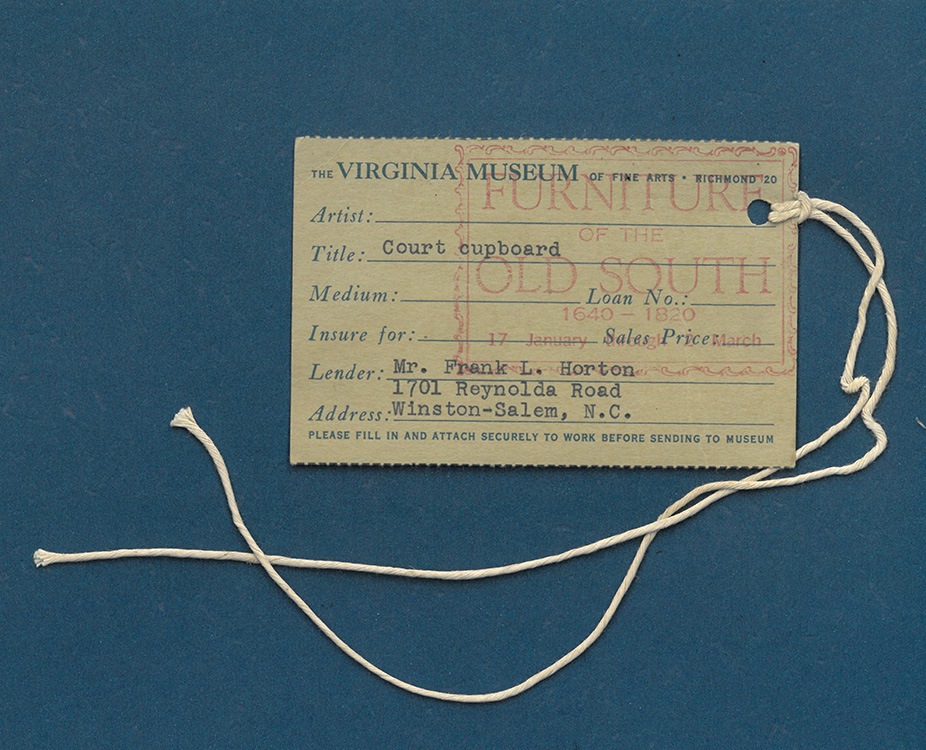 THE VIRGINIA MUSEUM OF FINE ARTS • RICHMOND 20
FURNITURE
Artist:
OF THE
Title: Court cupboard
OLD SOUTH
Medium: Loan No.:
1640 – 1820
Insure for: Sales Price:
17 January through March
Lender: Mr. Frank L. Horton
1701 Reynolda Road
Address: Winston-Salem, N.C.
PLEASE FILL IN AND ATTACH SECURELY TO WORK BEFORE SENDING TO MUSEUM